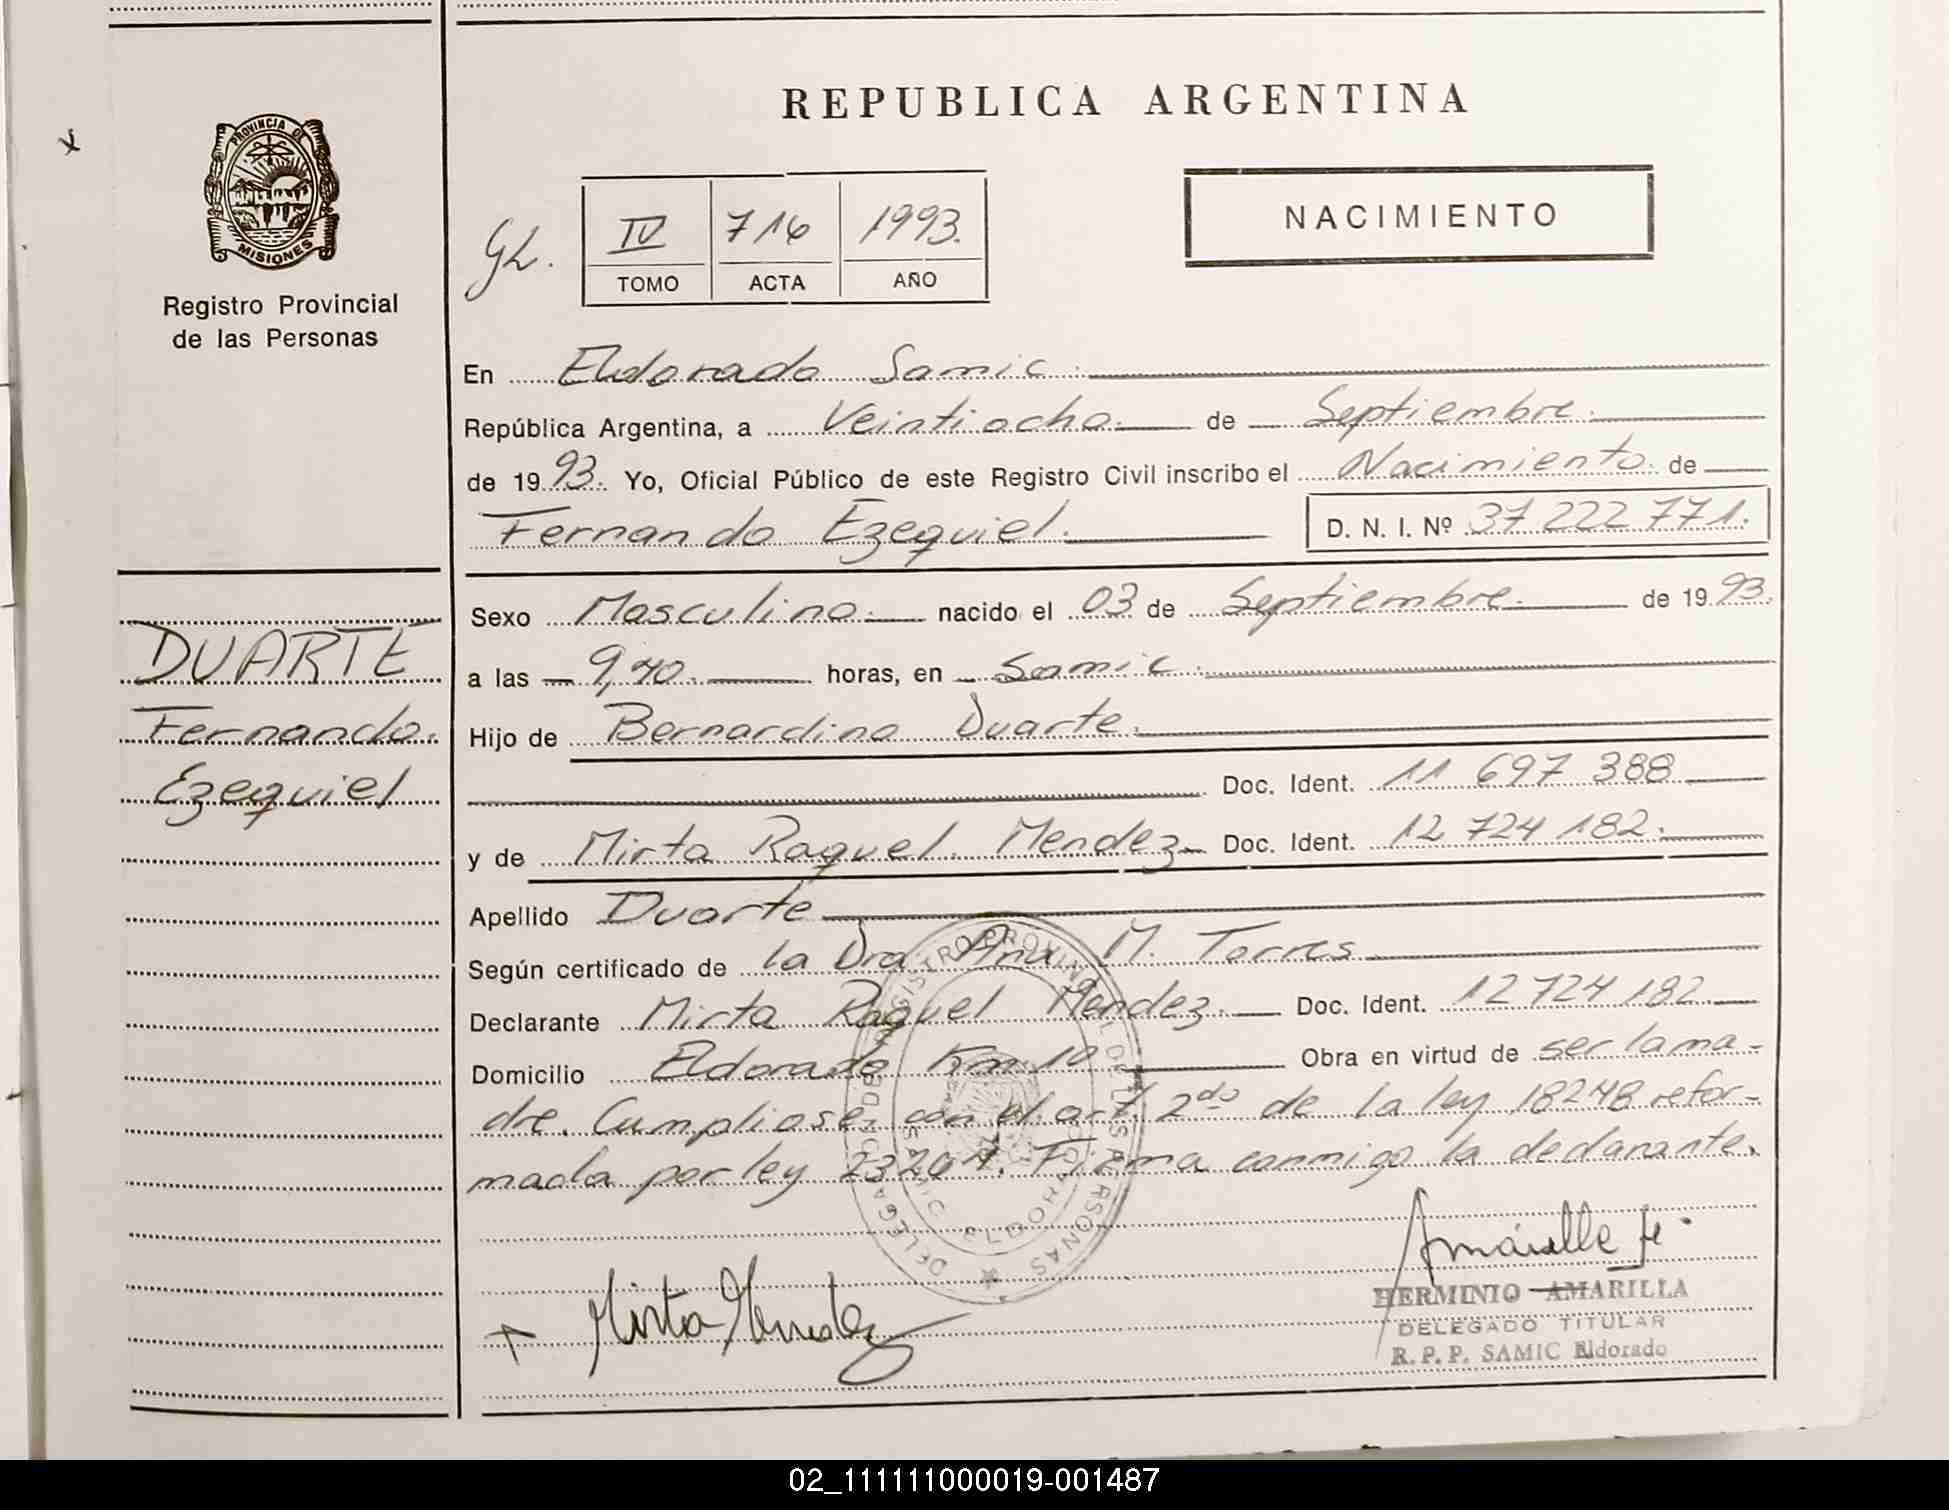 PROVINCIA DE
MISIONES
Registro Provincial
de las Personas
DUARTE
Fernando.
Ezequiel
REPUBLICA ARGENTINA
GL.
IV 716 1993.
TOMO ACTA AÑO
NACIMIENTO
En Eldorado Samic.
República Argentina, a Veintiocho. de Septiembre.
de 1993. Yo, Oficial Público de este Registro Civil inscribo el Nacimiento. de
Fernando Ezequiel. D. N. I. Nº 37 222 771.
Sexo Masculino. nacido el 03 de Septiembre. de 1993.
a las 9,40. horas, en Samic.
Hijo de Bernardino Duarte.
Doc. Ident. 11 697 388
y de Mirta Raquel. Mendez Doc. Ident. 12 724 182.
Apellido Duarte
Según certificado de la Dra. Ana M. Torres
Declarante Mirta Raquel Mendez. Doc. Ident. 12 724 182
Domicilio Eldorado Km. 10 Obra en virtud de ser la ma-
dre. Cumpliose. con el art. 2do de la ley 18248 refor-
mada por ley 23264. Firma conmigo la declarante.
Mirta Mendez
HERMINIO AMARILLA
DELEGADO TITULAR
R. P. P. SAMIC Eldorado
02_111111000019-001487